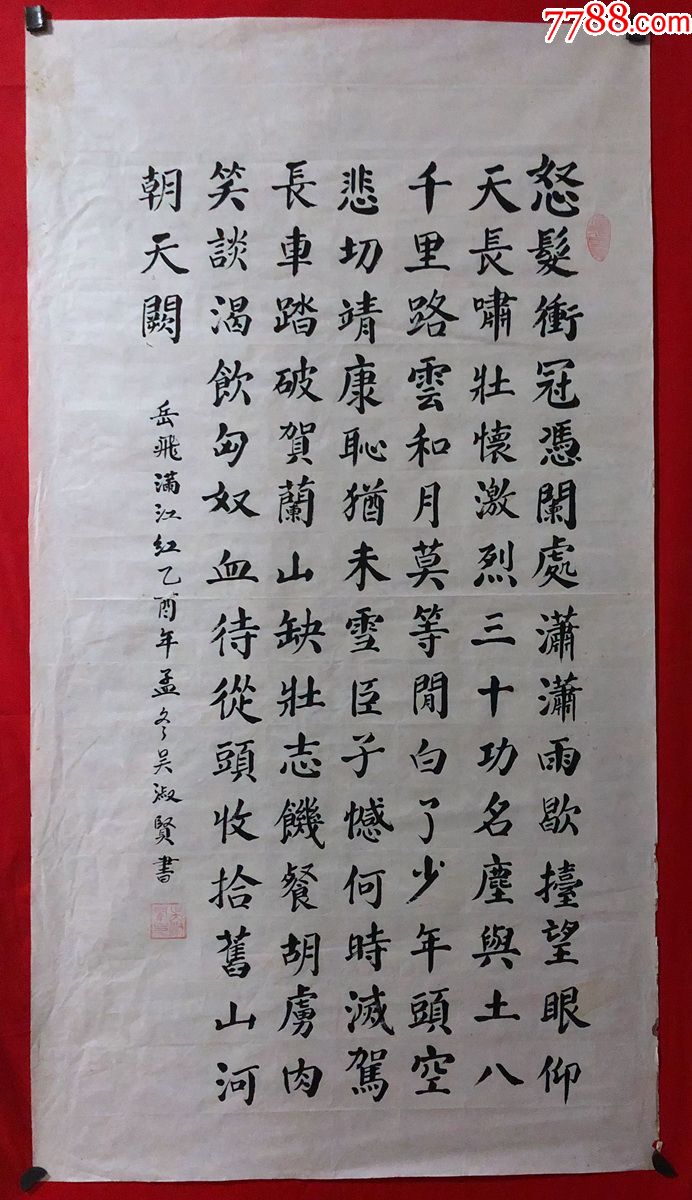 怒髮衝冠憑闌處瀟瀟雨歇擡望眼仰
天長嘯壯懷激烈三十功名塵與土八
千里路雲和月莫等閒白了少年頭空
悲切靖康恥猶未雪臣子憾何時滅駕
長車踏破賀蘭山缺壯志饑餐胡虜肉
笑談渴飲匈奴血待從頭收拾舊山河
朝天闕
岳飛滿江紅乙酉年孟冬吳淑賢書
7788.com